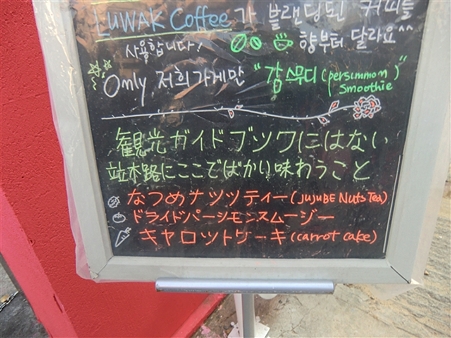 LUWAK Coffee가 블랜딩된 커피를
사용합니다! 향부터 달라요^^
Only 저희가게만 "감스무디(persimmon
Smoothie)"
観光ガイドブツワにはない
竝本路にここでばかり味わうこと
なつめナツツティー(JUJUBE Nuts Tea)
ドライドパーシモンスムージー
キャロットケーキ(carrot cake)